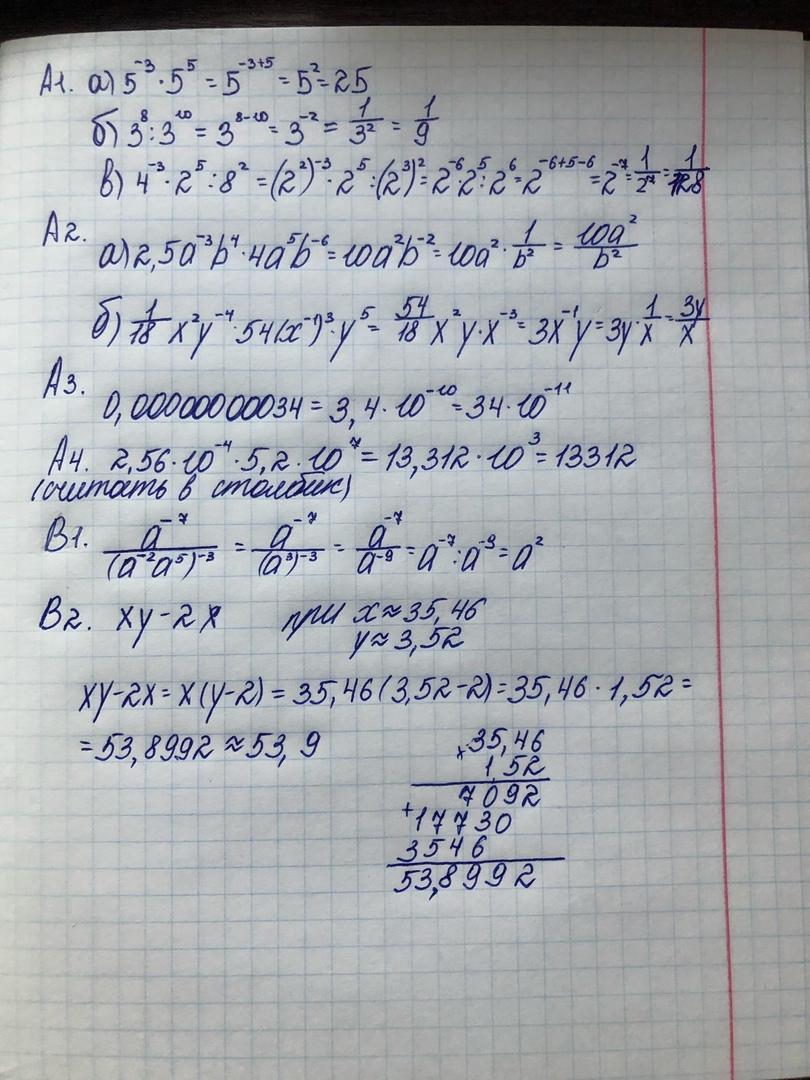 А1. а) 5⁻³ · 5⁵ = 5⁻³⁺⁵ = 5² = 25
б) 3⁸ : 3¹⁰ = 3⁸⁻¹⁰ = 3⁻² = 1/3² = 1/9
в) 4⁻³ · 2⁵ : 8² = (2²)⁻³ · 2⁵ : (2³)² = 2⁻⁶ · 2⁵ : 2⁶ = 2⁻⁶⁺⁵⁻⁶ = 2⁻⁷ = 1/2⁷ = 1/128
А2.
а) 2,5a⁻³b⁴ · 4a⁵b⁻⁶ = 10a²b⁻² = 10a² · 1/b² = 10a²/b²
б) 1/18 x²y⁻⁴ · 54(x⁻¹)³ · y⁵ = 54/18 x²y · x⁻³ = 3x⁻¹y = 3y · 1/x = 3y/x
А3.
0,00000000034 = 3,4 · 10⁻¹⁰ = 34 · 10⁻¹¹
А4. 2,56 · 10⁻⁴ · 5,2 · 10⁷ = 13,312 · 10³ = 13312
(считать в столбик)
В1. a⁻⁷/(a⁻²a⁵)⁻³ = a⁻⁷/(a³)⁻³ = a⁻⁷/a⁻⁹ = a⁻⁷ : a⁻⁹ = a²
В2. xy - 2x при x ≈ 35,46
y ≈ 3,52
xy - 2x = x(y - 2) = 35,46(3,52 - 2) = 35,46 · 1,52 =
= 53,8992 ≈ 53,9
× 35,46
1,52
7092
+ 17730
3546
53,8992